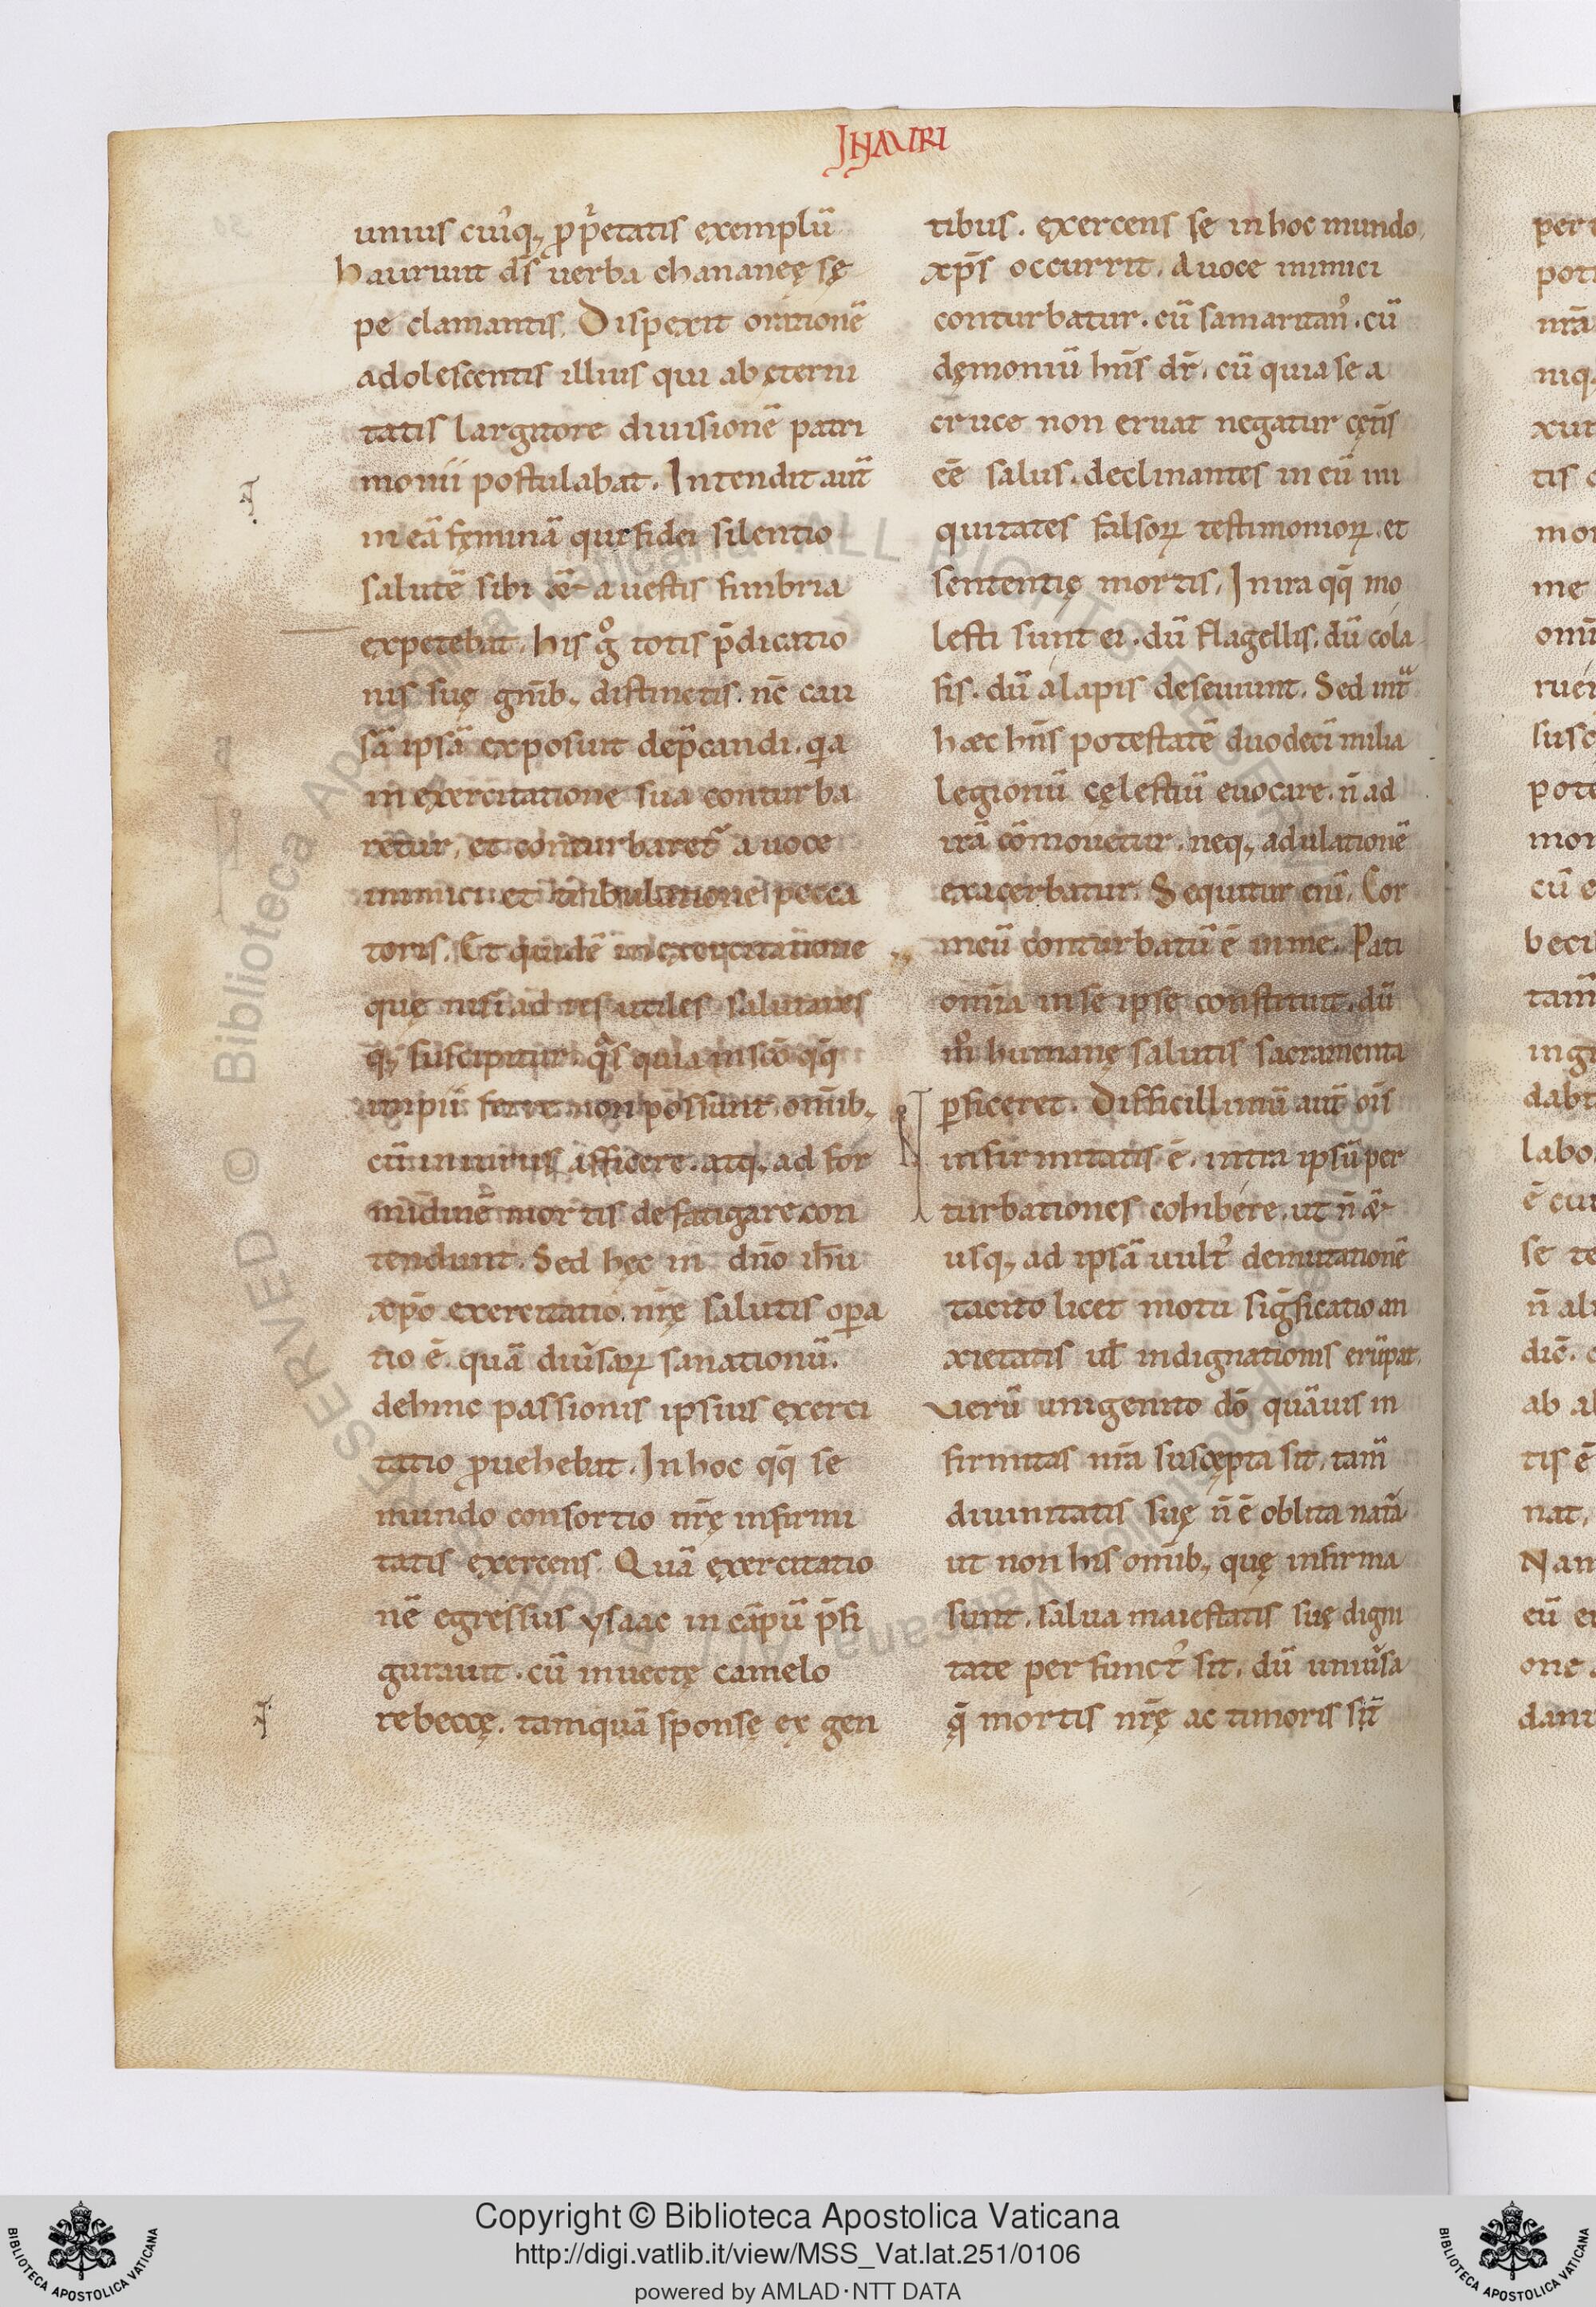 JHAURI
unius cui᾽q; ꝓp̾etatis exemplū
hauriunt d̄s uerba chananeę sę
pe clamantis. Dispexit orationē
adolescentis illius qui ab ęterni
tatis largitore diuisionē patri
monii postulabat. Intendit aut̄
in eā fęminā que fidei silentio
salutē sibi & a uestis fimbria
expetebat. his g̊ totis p̄dicatio
nis suę gn̄ib; distinctis. nc̄ cau
sā ipsā exposuit dep̄candi. qa
in exercitatione sua conturba
retur, et conturbaret᾽ a uoce
inimici et tribulatione pecca
toris. Et quidē in exercitatione
quę nisi ad res utiles salutares
q; suscipitur. qs quia in scō qq̄
impii feret non possunt. omib;
cū iniuriis afficere. atq; ad for
midinē mortis defatigare con
tendunt. Sed hęc in dn̄o ih̄u
xp̄o exercitatio. nr̄ę salutis oꝑa
tio ē. quā diu᾽saꝝ sanationū.
dehinc passionis ipsius exerci
tatio ꝓuehebat. In hoc qq̄ se
mundo consortio nr̄ę infirmi
tatis exercens. Quā exercitatio
nē egressus ysaac in cāpū p̄fi
gurauit. cū inuectę camelo
rebeccę. tamquā sponsę ex gen
tibus. exercens se in hoc mundo
xp̄s occurrit. A uoce inimici
conturbatur. cū samaritan᾽. cū
dęmoniū hn̄s dr̄. cū quia se a
cruce non eruat negatur cęt̄is
eē salus. declinantes in eū ini
quitates falsoꝝ testimonioꝝ. et
sententię mortis. In ira qq̄ mo
lesti sunt ei. dū flagellis. dū cola
fis. dū alapis deseuiunt. Sed int̄
hæc hn̄s potestatē duodecī milia
legionū cęlestiū euocare. n̄ ad
irā cōmouetur. neq; adulationē
exacerbatur. Sequitur enī. Cor
meū conturbatū ē in me. Pati
omīa in se ipse constituit. dū
in̊ humanę salutis sacramenta
ꝑficeret. Difficillimū aut̄ om̄is
infirmitatis ē. intra ipsū per
turbationes cohibere. ut n̄ &
usq; ad ipsā uult᾽ demutationē
tacito licet motu sigficatio an
xietatis ul̄ indignationis erūpat.
Verū unigenito dō quāuis in
firmitas nr̄a suscępta sit. tam̄
diuinitatis suę n̄ ē oblita nat̄a
ut non his omib; quę infirma
sunt. salua maiestatis suę digni
tate per funct᾽ sit. dū uniu᾽sa
q̄ mortis nr̄ę ac timoris sūt
Copyright © Biblioteca Apostolica Vaticana
http://digi.vatlib.it/view/MSS_Vat.lat.251/0106
powered by AMLAD·NTT DATA